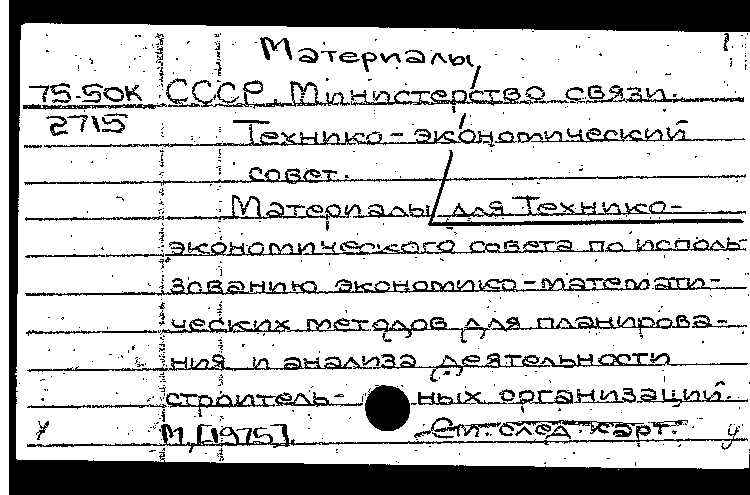 Материалы
75-50К СССР. Министерство связи.
2715 Технико-экономический
совет.
Материалы для Технико-
экономического совета по исполь-
зованию экономико-математи-
ческих методов для планирова-
ния и анализа деятельности
строитель- ных организаций.
М,[1975]. См. след. карт. у